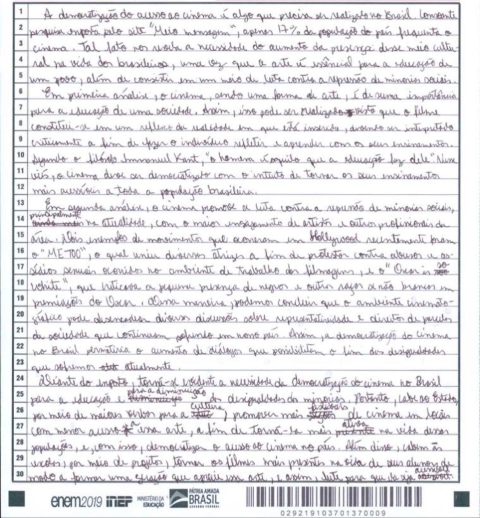 1 A democratização do acesso ao cinema é algo que precisa ser realizado no Brasil. Consoante
2 pesquisa exposta pelo site "Meio mensagem", apenas 17% da população do país frequenta o
3 cinema. Tal fato nos revela a necessidade do aumento da presença desse meio cultu-
4 ral na vida dos brasileiros, uma vez que a arte é essencial para a educação de
5 um povo, além de consistir em um meio de luta contra a repressão de minorias sociais.
6 Em primeira análise, o cinema, sendo uma forma de arte, é de suma importância
7 para a educação de uma sociedade. Assim, isso pode ser realizado visto que o filme
8 constitui-se em um reflexo da realidade em que está inserido, devendo ser interpretado
9 criticamente a fim de fazer o indivíduo refletir e aprender com os seus ensinamentos.
10 Segundo o filósofo Immanuel Kant, "o homem é aquilo que a educação faz dele". Nesse
11 viés, o cinema deve ser democratizado com o intuito de tornar os seus ensinamentos
12 mais acessíveis a toda a população brasileira.
13 Em segunda análise, o cinema promove a luta contra a repressão de minorias sociais,
14 principalmente na atualidade, com o maior engajamento de artistas e outros profissionais da
15 área. Dois exemplos de movimentos que ocorreram em Hollywood recentemente foram
16 o "ME TOO", o qual uniu diversas atrizes a fim de protestar contra abusos e as-
17 sédios sexuais ocorridos no ambiente de trabalho das filmagens, e o "Oscar is so
18 white", que criticava a pequena presença de negros e outras raças não brancas em
19 premiações do Oscar. Dessa maneira, podemos concluir que o ambiente cinemato-
20 gráfico pode desencadear diversas discussões sobre representatividade e direitos de parcelas
21 da sociedade que continuam sofrendo em nosso país. Assim, a democratização do cinema
22 no Brasil permitiria o aumento de diálogos que possibilitem o fim das desigualdades
23 que sofremos atualmente.
24 Diante do exposto, torna-se evidente a necessidade da democratização do cinema no Brasil
25 para a educação e para a diminuição da desigualdade das minorias. Portanto, cabe ao Estado,
26 por meio de maiores verbas para a cultura, promover mais festivais de cinema em locais
27 com menor acesso a essa arte, a fim de torná-la mais ativa na vida dessas
28 populações, e, com isso, democratizar o acesso ao cinema no país. Além disso, cabem às
29 escolas, por meio de projetos, tornar os filmes mais presentes na vida de seus alunos de
30 modo a formar uma geração que aprecie essa arte, e assim, lute para que ela seja acessível
enem2019 INEP MINISTÉRIO DA EDUCAÇÃO PÁTRIA AMADA BRASIL GOVERNO FEDERAL
029219103701370009